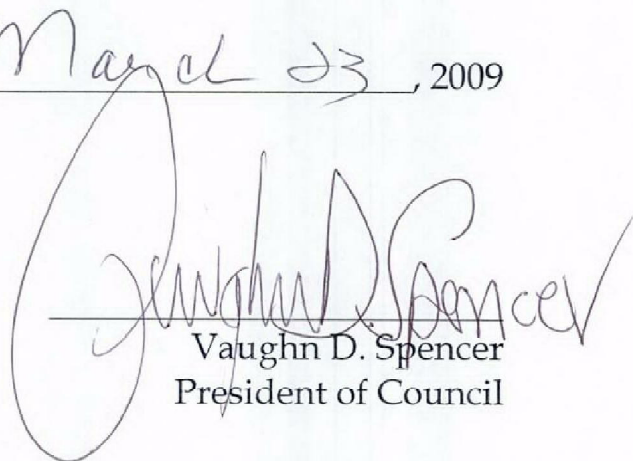 March 23, 2009
Vaughn D. Spencer
Vaughn D. Spencer
President of Council